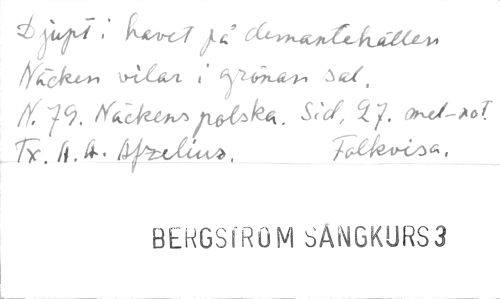 Djupt i havet på demantehällen
Näcken vilar i grönan sal.
N. 79. Näckens polska. Sid, 27. mel-not.
Tx. A. A. Afzelius. Folkvisa.
BERGSTRÖM SÅNGKURS 3